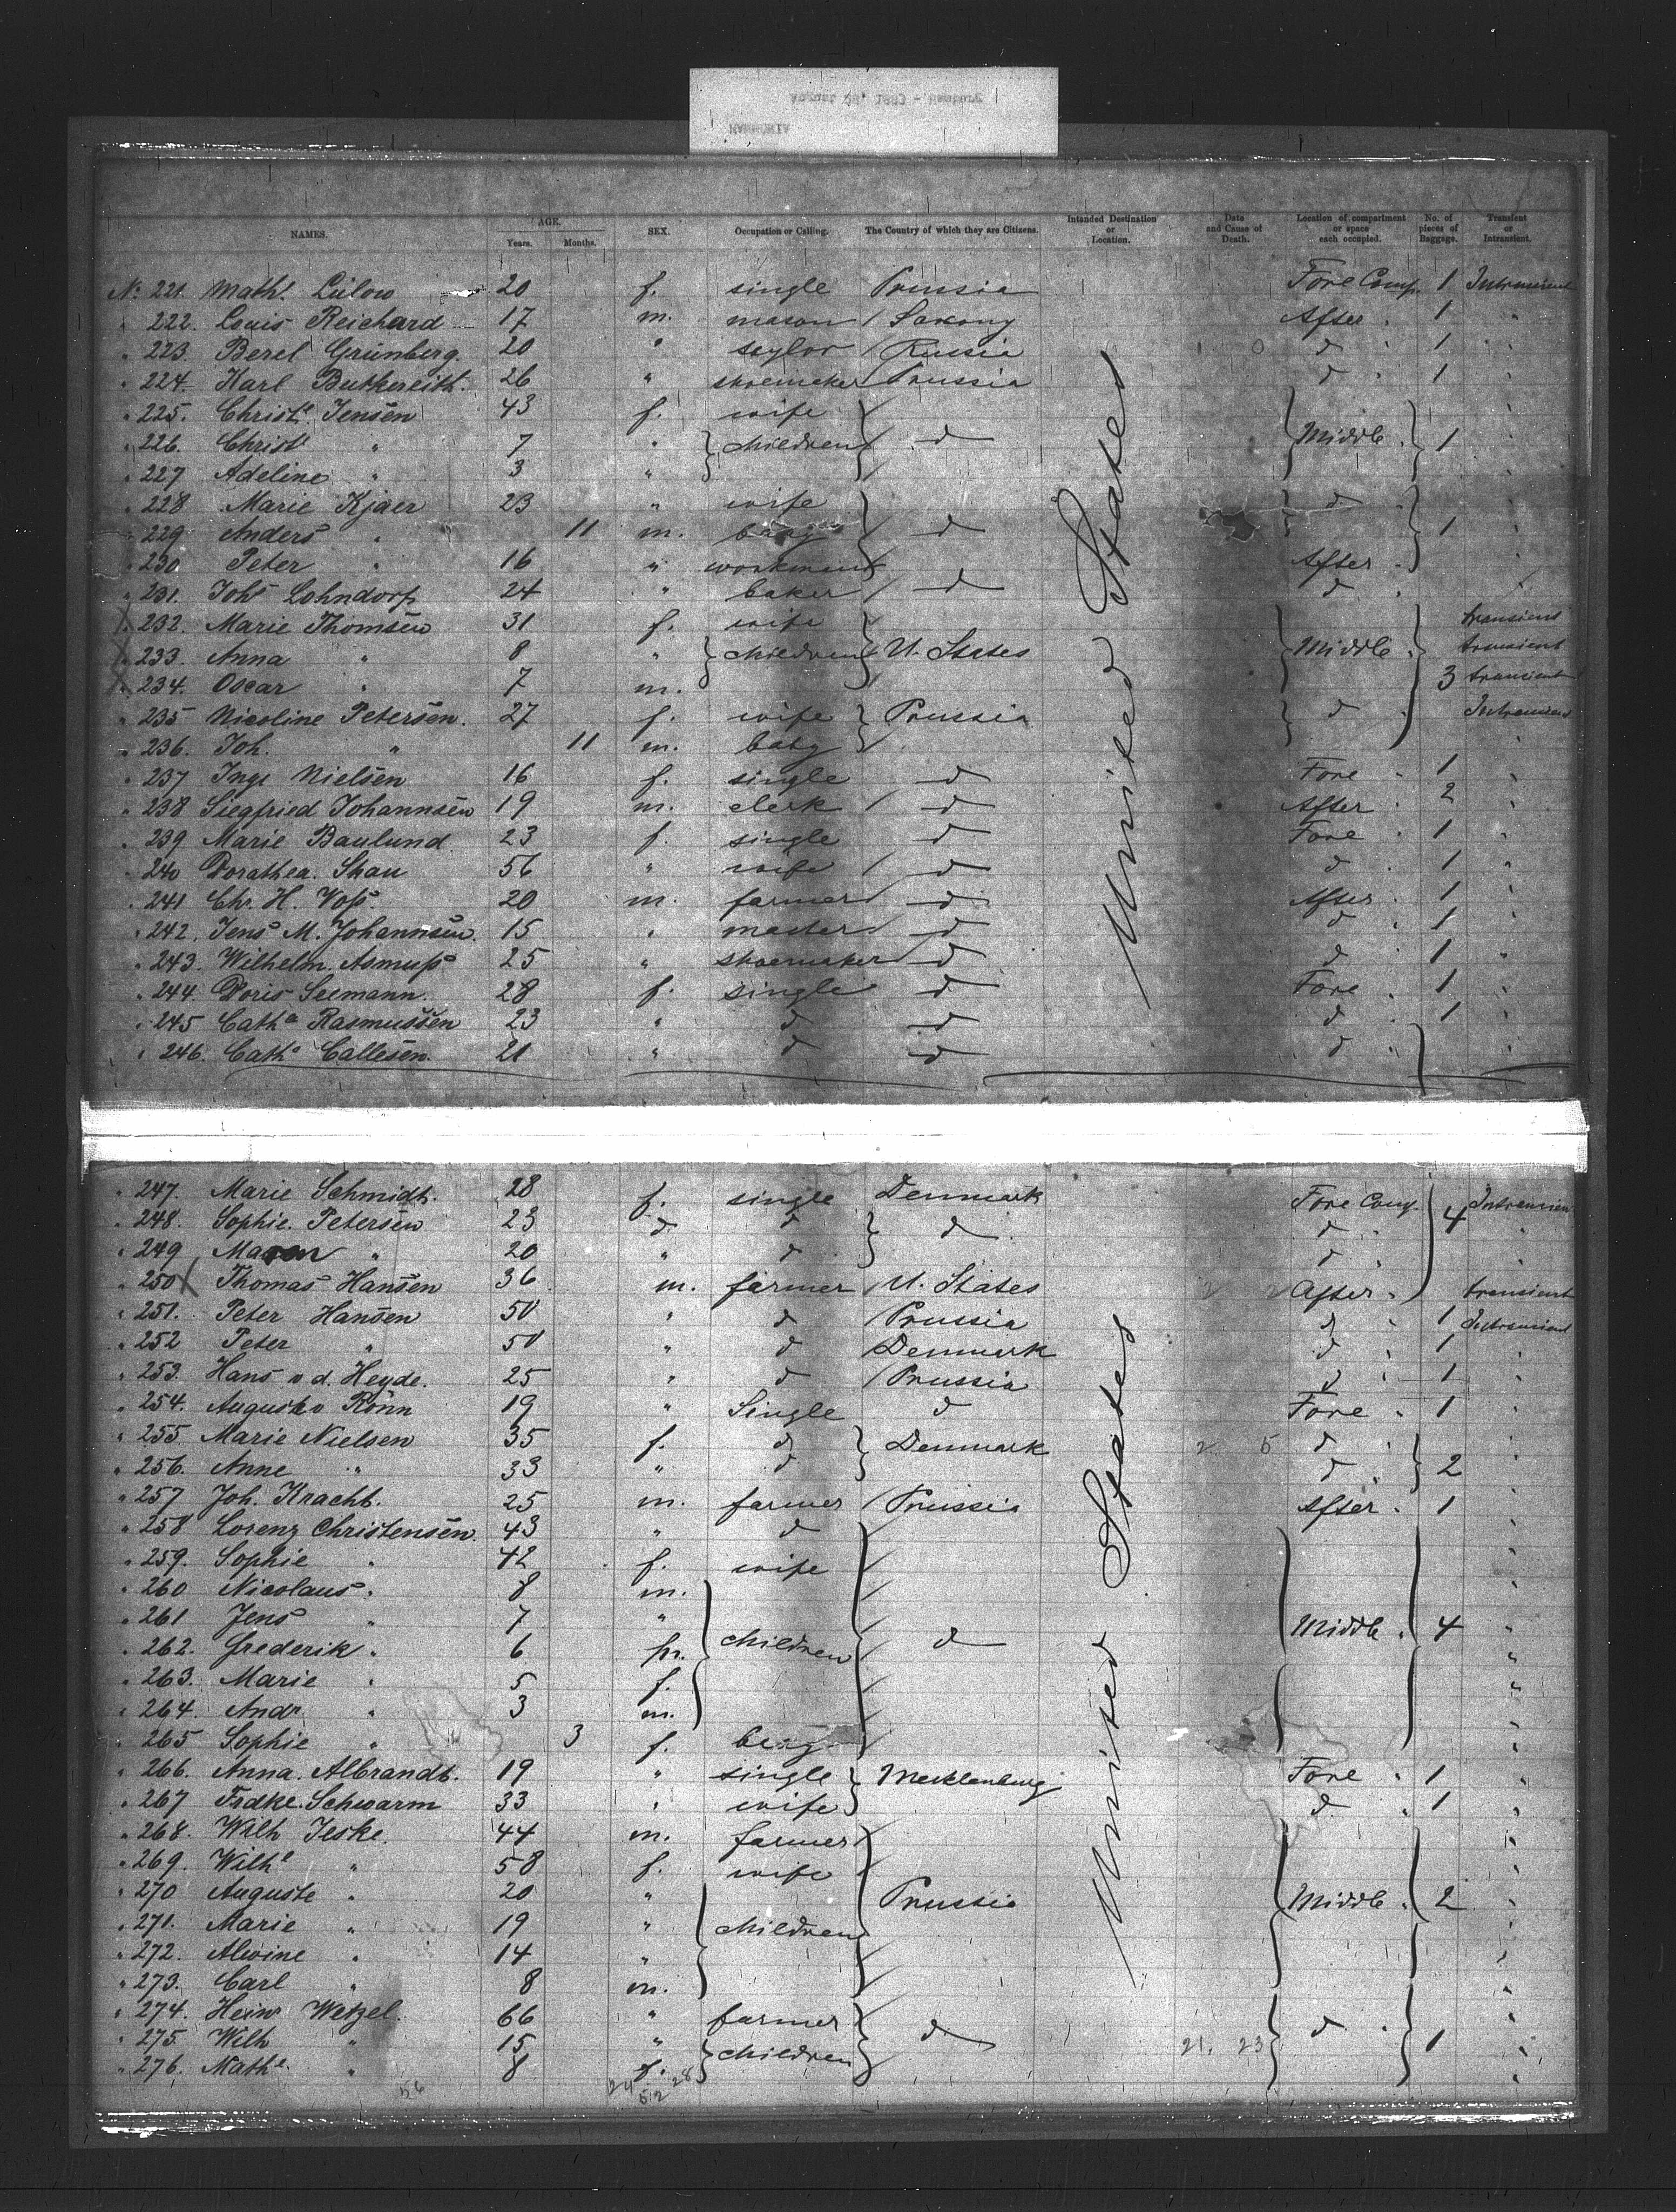 August 28, 1883 - Hamburg
HAMMONIA
NAMES. AGE. Years. Months. SEX. Occupation or Calling. The Country of which they are Citizens. Intended Destination or Location. Date and Cause of Death. Location of compartment or space each occupied. No. of pieces of Baggage. Transient or Intransient.
No. 221. Math. Lülow 20 f. single Prussia Fore Comp. 1 Intransient
" 222. Louis Reichard 17 m. mason Saxony After " 1 "
" 223. Berel Grünberg. 20 " saylor Russia d " 1 "
" 224. Karl Butkereith. 26 " shoemaker Prussia d " 1 "
" 225. Christe Jensen 43 f. wife "
" 226. Christ " 7 " children d Middle " 1 "
" 227 Adeline " 3 " "
" 228 Marie Kjaer 23 " wife d "
" 229 Anders " 11 m. baby d 1 "
" 230 Peter " 16 " workman After " "
" 231. Johs Lohndorf 24 " baker d d "
" 232. Marie Thomsen 31 f. wife transient
" 233. Anna " 8 " children U. States Middle " transient
" 234. Oscar " 7 m. 3 transient
" 235 Nicoline Petersen. 27 f. wife Prussia d " Intransient
" 236. Joh. " 11 m. baby "
" 237 Inge Nielsen 16 f. single d Fore " 1 "
" 238 Siegfried Johannsen 19 m. clerk d After " 2 "
" 239 Marie Baulund 23 f. single d Fore " 1 "
" 240 Dorathea. Skau 56 " wife d d 1 "
" 241 Chr. H. Voß 20 m. farmer d After " 1 "
" 242. Jens M. Johannsen. 15 " d d 1 "
" 243. Wilhelm. Asmuß 25 " shoemaker d d 1 "
" 244. Doris Seemann. 28 f. single d Fore " 1 "
" 245 Catha Rasmussen 23 " d d d " 1 "
" 246. Cathe Callesen. 21 " d d d "
United States
" 247. Marie Schmidt. 28 f. single Denmark Fore Comp. 4 Intransient
" 248. Sophie. Petersen 23 d d d d "
" 249 Maren " 20 " d d "
" 250 X Thomas Hansen 36 m. farmer U. States After " transient
" 251. Peter Hansen 50 " d Prussia d " 1 Intransient
" 252 Peter " 50 " d Denmark d " 1 "
" 253. Hans v d. Heyde. 25 " d Prussia d " 1 "
" 254. Auguste Rönn 19 " Single d Fore " 1 "
" 255 Marie Nielsen 35 f. d Denmark 2 5 d " "
" 256. Anne " 33 " d d " 2 "
" 257 Joh. Kracht. 25 m. farmer Prussia After " 1 "
" 258 Lorenz Christensen. 43 " d "
" 259. Sophie " 42 f. wife "
" 260 Nicolaus " 8 m. "
" 261 Jens " 7 " Middle " 4 "
" 262. Frederik " 6 m. children d "
" 263. Marie " 5 f. "
" 264. Andr " 3 m. "
" 265 Sophie " 3 f. baby "
" 266. Anna. Albrandt. 19 " single Mecklenburg Fore " 1 "
" 267 Frdke. Schwarm 33 " wife d " 1 "
" 268. Wilh Jeske. 44 m. farmer "
" 269. Wilhe " 58 f. wife "
" 270 Auguste " 20 " Prussia Middle " 2 "
" 271. Marie " 19 " children "
" 272. Alwine " 14 " "
" 273. Carl " 8 m. "
" 274. Heinr Wetzel. 66 " farmer d d " "
" 275. Wilh " 15 " children 21. 23 1 "
" 276. Mathe " 8 f. "
United States
56 24 28
52